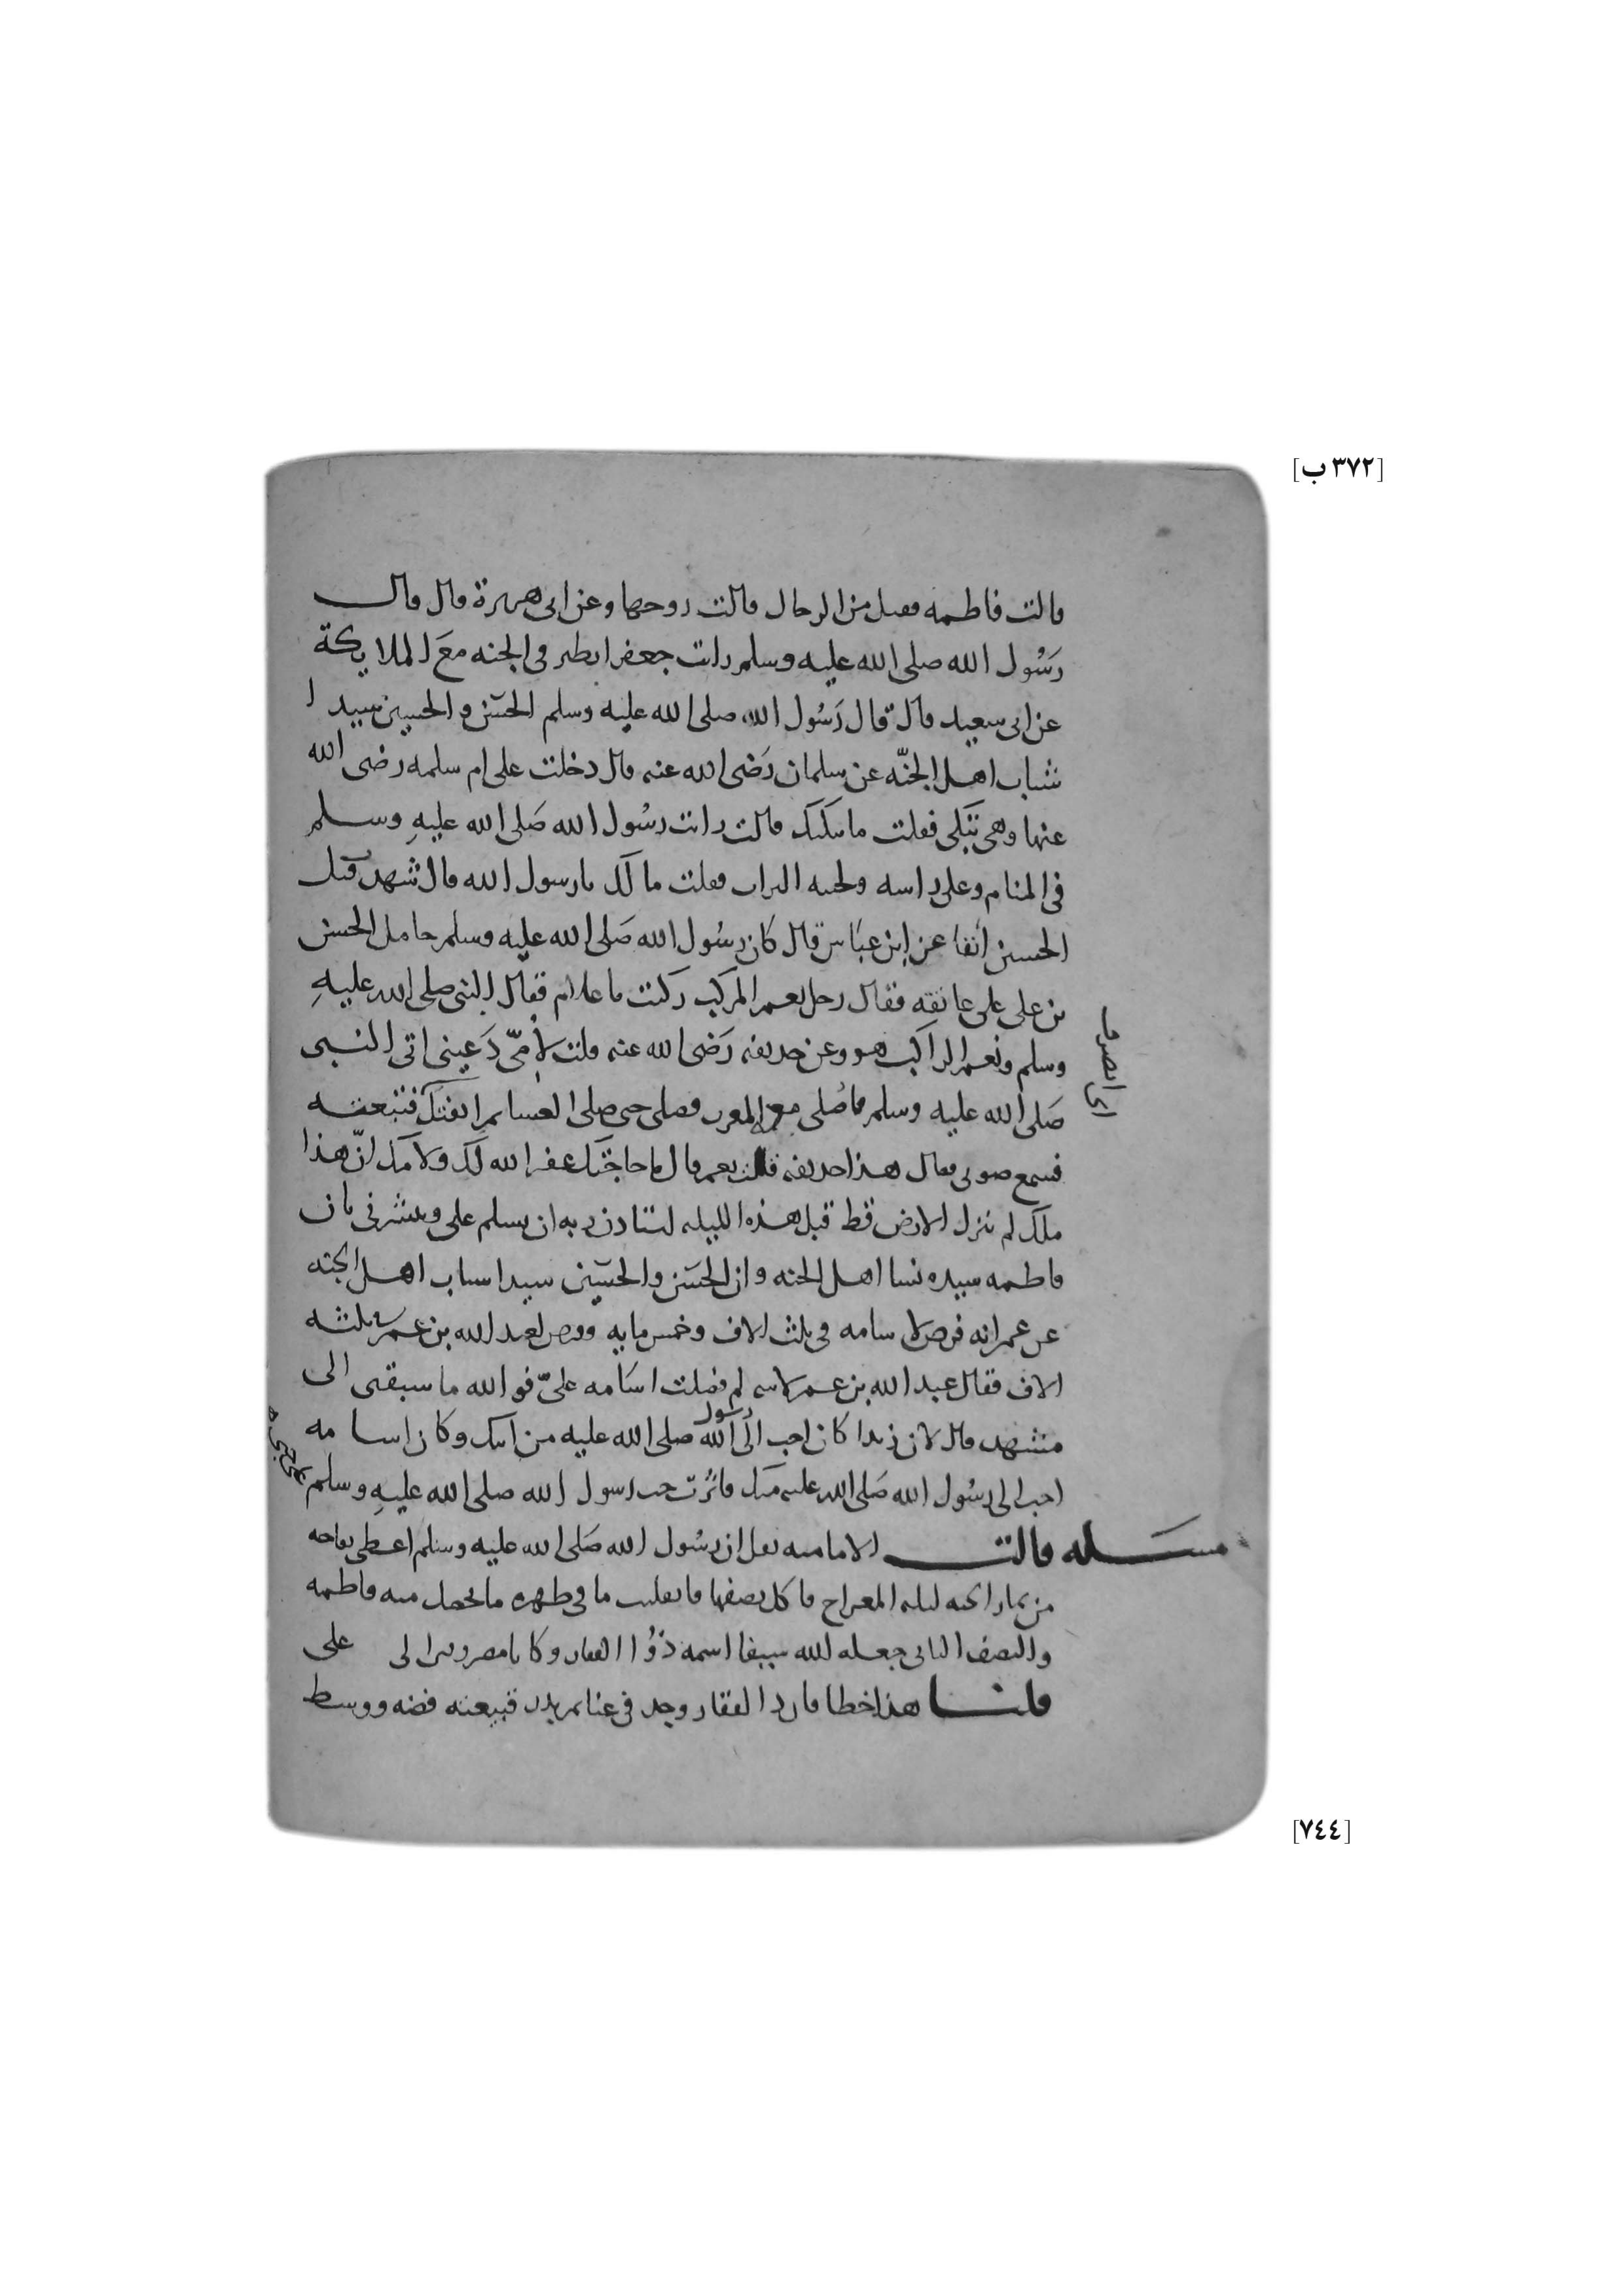 [٣٧٢ ب]
قالت فاطمه فقيل من الرجال قالت زوجها وعن ابى هريرة قال قال
رَسُول الله صلى الله عليه وسلم رايت جعفرا يطير فى الجنه معَ الملايكة
عن ابى سعيد قال قال رَسُول الله صلى الله عليه وسلم الحسَن والحسين سيدا
شباب اهل الجنّه عن سلمان رَضى الله عنه قال دخلت على ام سلمه رضى الله
عنها وهى تبكى فقلت ما يبكيك قالت رايت رسُول الله صَلى الله عليهِ وسلم
فى المنام وعلى راسه ولحيته التراب فقلت ما لك يا رسول الله قال شهدت قتل
الحسين آنفا عن ابن عبّاس قال كان رسُول الله صَلى الله عليه وسلم حامل الحسن
بن على على عاتقه فقال رجل نعم المركب ركبت يا غلام فقال النبى صلى الله عليهِ
وسلم ونعم الراكب هو وعن حذيفه رَضى الله عنه قلت لأمّى دَعينى اتى النبى
صَلى الله عليه وسلم فاُصلى معه المغرب فصلى حتى صلى العشا ثم انفتل فتبعته
فسمع صوتى فقال هذا حذيفه قلت نعم قال ما حاجتك غفر الله لك ولامك انّ هذا
ملك لم ينزل الارض قط قبل هذه الليله استاذن ربه ان يسلم على ويبشرنى بان
فاطمه سيده نسا اهل الجنه وان الحسَن والحسَين سيدا شباب اهل الجنه
عن عمر انه فرض لاسامه فى ثلث الاف وخمس مايه وفرض لعبد الله بن عمر ثلثه
الاف فقال عبد الله بن عمر لابيه لم فضلت اسَامه علىّ فوالله ما سبقنى الى
مشهد قال لان زيدا كان احب الى رسول الله صلى الله عليه من ابيك وكان اسامه
احب الى رسُول الله صَلى الله عليه منك فاثرت حب رسول الله صلى الله عليهِ وسلم
مسَله قالت الاماميه نقل ان رسُول الله صَلى الله عليه وسلم اعطى تفاحه
من ثمار الجنه ليله المعراج فاكل نصفها فانقلبت ما فى ظهره ما فحصل منه فاطمه
والنصف الثانى جعله الله سيفا اسمه ذوُا الفقار وكانا مصروفين الى على
قلنا هذا خطا فان ذا الفقار وجد فى غنايم بدر قبيعته فضه ووسط
اى انصرف
[٧٤٤]